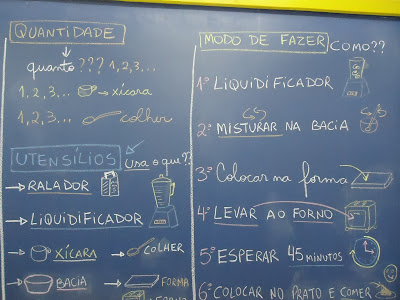 QUANTIDADE
quanto ??? 1,2,3...
1,2,3... xícara
1,2,3... colher
UTENSÍLIOS Usa o que??
RALADOR
LIQUIDIFICADOR
XÍCARA COLHER
BACIA FORMA
FORNO
MODO DE FAZER COMO??
1º LIQUIDIFICADOR
2º MISTURAR NA BACIA
3º Colocar na forma
4º LEVAR AO FORNO
5º ESPERAR 45 MINUTOS
6º COLOCAR NO PRATO E COMER